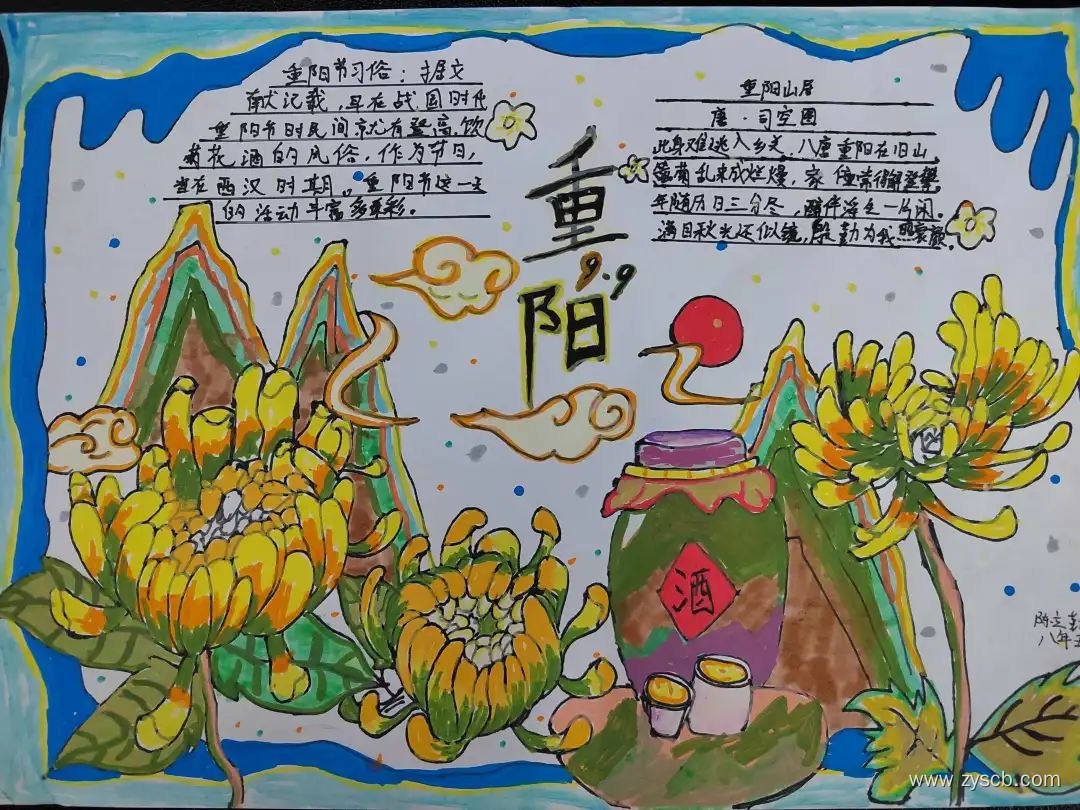 重阳节习俗：据文
献记载，早在战国时代
重阳节时民间就有登高，饮
菊花酒的风俗，作为节日，
当在西汉时期。重阳节这一天
的活动丰富多彩。
重阳
9.9
重阳山居
唐·司空图
此身难逃入乡关，八唐重阳在旧山。
篱菊乱来成烂熳，家僮常得解登攀。
年随历日三分尽，醉伴浮生一片闲。
满目秋光还似镜，殷勤为我照衰颜。
酒
八年
www.zyscb.com